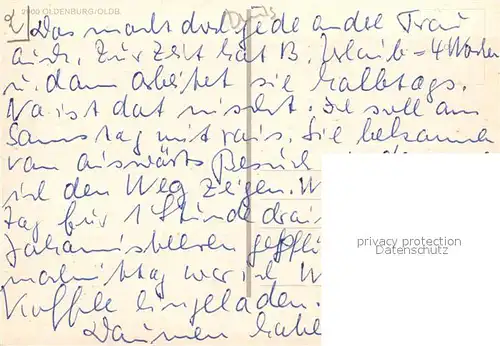 2900 OLDENBURG/OLDB.
2) Das macht doch jede andre Frau
auch. Zur Zeit hat B. Urlaub = 4 Wochen
u. dann arbeitet sie halbtags.
Na ist dat nischt. Ich soll am
Samstag mit raus. Sie bekamen
von auswärts Besuch
ich den Weg zeigen. W
tag für 1 Stunde drau
Johannisbeeren gepflü
mahittag war ich
Kaffee eingeladen.
Daumen habe
privacy protection
Datenschutz